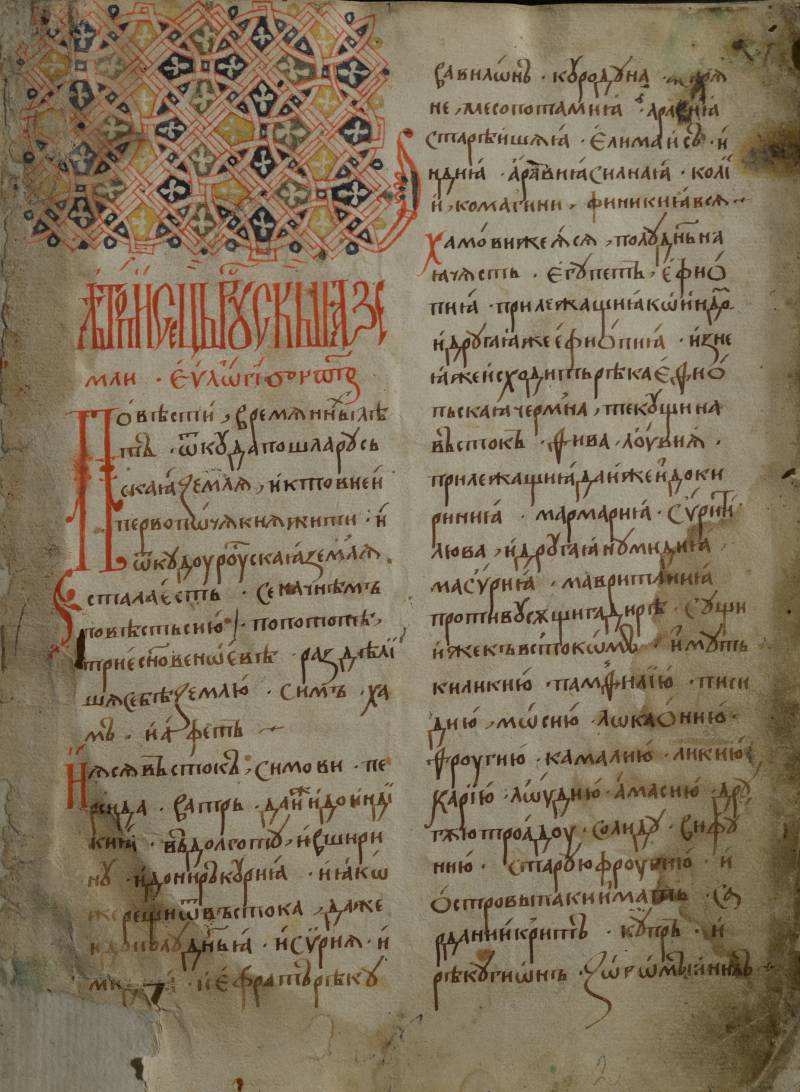 лѣтописець рꙋскыꙗ зе
мли · еѵлогі ѿ
Повѣсти , времяннꙑꙗ лѣ
тъ · ѿкуда пошла русь
скаꙗ земля , и кто в неи
перво почя княжити · и
ѿкудоу роускаꙗ земля
стала есть · се начнѣмъ
повѣсть сию · по потопѣ ,
трие снове ноеве · раздѣлі
шя себѣ землю · симъ · ха
мъ · иафеть
Ꙗся въстокъ , симови · пе
рсида · ватръ · даж и до инді
киꙗ · въ долготу , и вшири
ну · и до нирокуриꙗ · и ꙗко
же рещи ѿ въстока , даже
и до полуднꙗ · и сѵриꙗ · и
ми · и ефратъ рѣку
вавилонъ · кородуна ·
не , месопотамиꙗ · аравиꙗ
старѣишꙗꙗ · елимаисъ · и
индиꙗ · аравиꙗ силнаꙗ · колі
и , комагини , финикиꙗ всꙗ
хамови же ꙗся , полуднꙗ
ꙗ чясть · егупетъ , ефио
пиꙗ · прилежащиꙗ ко индо
и другаꙗже ефиопиꙗ · из не
ꙗже исходить рѣка ефио
пьскаꙗ чермна , текущи на
въстокъ · фива · лоувиꙗ ·
прилежащиꙗ даже и до ки
риниꙗ · мармариꙗ · сурити
люва , и другаꙗ нумидиꙗ
масуриꙗ · мавританиꙗ
противу сꙗщи гадирѣ · сущи
и же къ въстокомъ · имуть
киликию · памфилию · писи
дию , мосию · лꙋкаонию ·
фроугию · камалию · ликию
карию · лоудию · амасию · дрꙋ
гꙗю троадоу · солиду · вифу
нию · старую фроугию · и
островы паки имать · са
рдани и крить · купръ · и
рѣку гиона · зовомꙑи нилъ